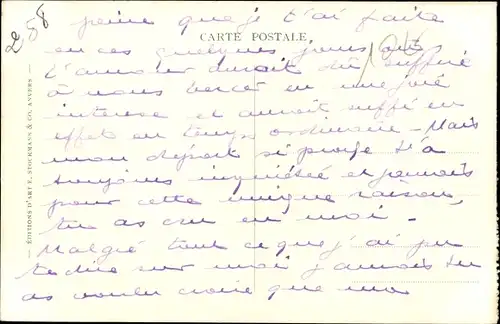 258
peine que je t'ai faite
CARTE POSTALE
en ces quelques jours où
l'amour aurait dû suffire
à nous bercer en une joie
intense et aurait suffi en
effet en temps ordinaire - Mais
mon départ si proche t'a
toujours inquiétée et jamais
pour cette unique raison,
tu as cru en moi -
Malgré tout ce que j'ai pu
te dire sur moi jamais tu
as voulu croire que mon
ÉDITIONS D'ART E. STOCKMANS & CO, ANVERS